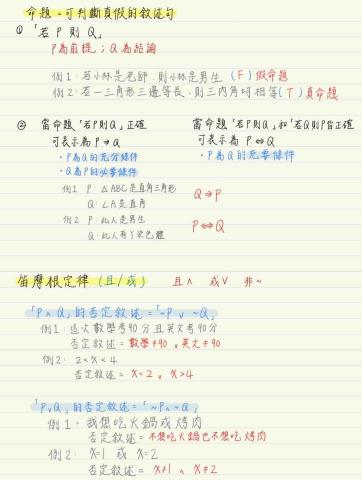 命題=可判斷真假的敘述句
① 「若 P 則 Q」
P為前提;Q為結論
例1:若小林是老師,則小林是男生 (F) 假命題
例2:若一三角形三邊等長,則三內角均相等 (T) 真命題
② 當命題「若P則Q」正確
可表示為 P→Q
・P為Q的充分條件
・Q為P的必要條件
例1 P:△ABC是直角三角形
Q:∠A是直角
Q⇒P
例2 P:此人是男生
Q:此人有Y染色體
P⇔Q
當命題「若P則Q」和「若Q則P皆正確
可表示為 P⇔Q
・P為Q的充要條件
笛摩根定律(且/或) 且∧ 或∨ 非~
「P∧Q」的否定敘述=「~P ∨ ~Q」
例1:這次數學考90分且英文考90分
否定敘述=數學≠90 ∨ 英文≠90
例2:2<x<4
否定敘述= x<2 ∨ x>4
「P∨Q」的否定敘述=「~P∧~Q」
例1:我想吃火鍋或烤肉
否定敘述=不想吃火鍋也不想吃烤肉
例2: x=1 或 x=2
否定敘述= x≠1 ∧ x≠2